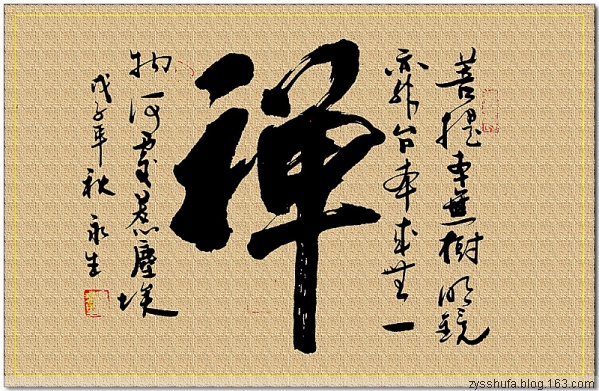 菩提本無樹明鏡
亦非台本來無一
禅
物何處惹塵埃
戊子年秋永生
zysshufa.blog.163.com